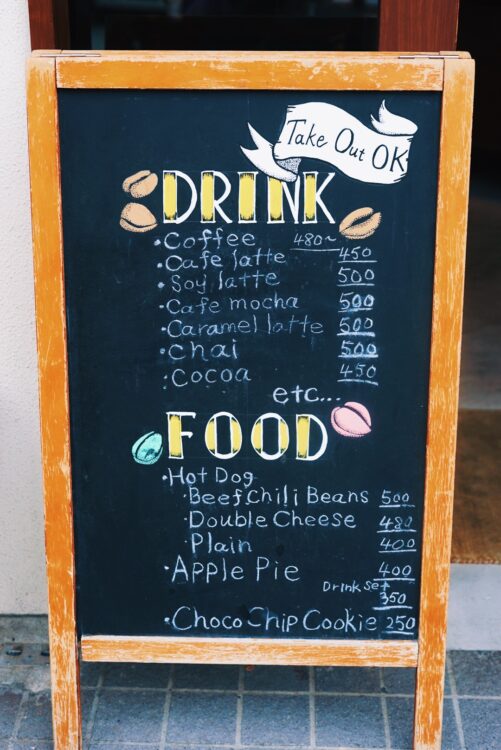 Take Out OK
DRINK
・Coffee 480~
・Cafe latte 450
・Soy latte 500
・Cafe mocha 500
・Caramel latte 500
・Chai 500
・Cocoa 450
etc...
FOOD
・Hot Dog
・Beef Chili Beans 500
・Double Cheese 480
・Plain 400
・Apple Pie 400
Drink Set 350
・Choco Chip Cookie 250